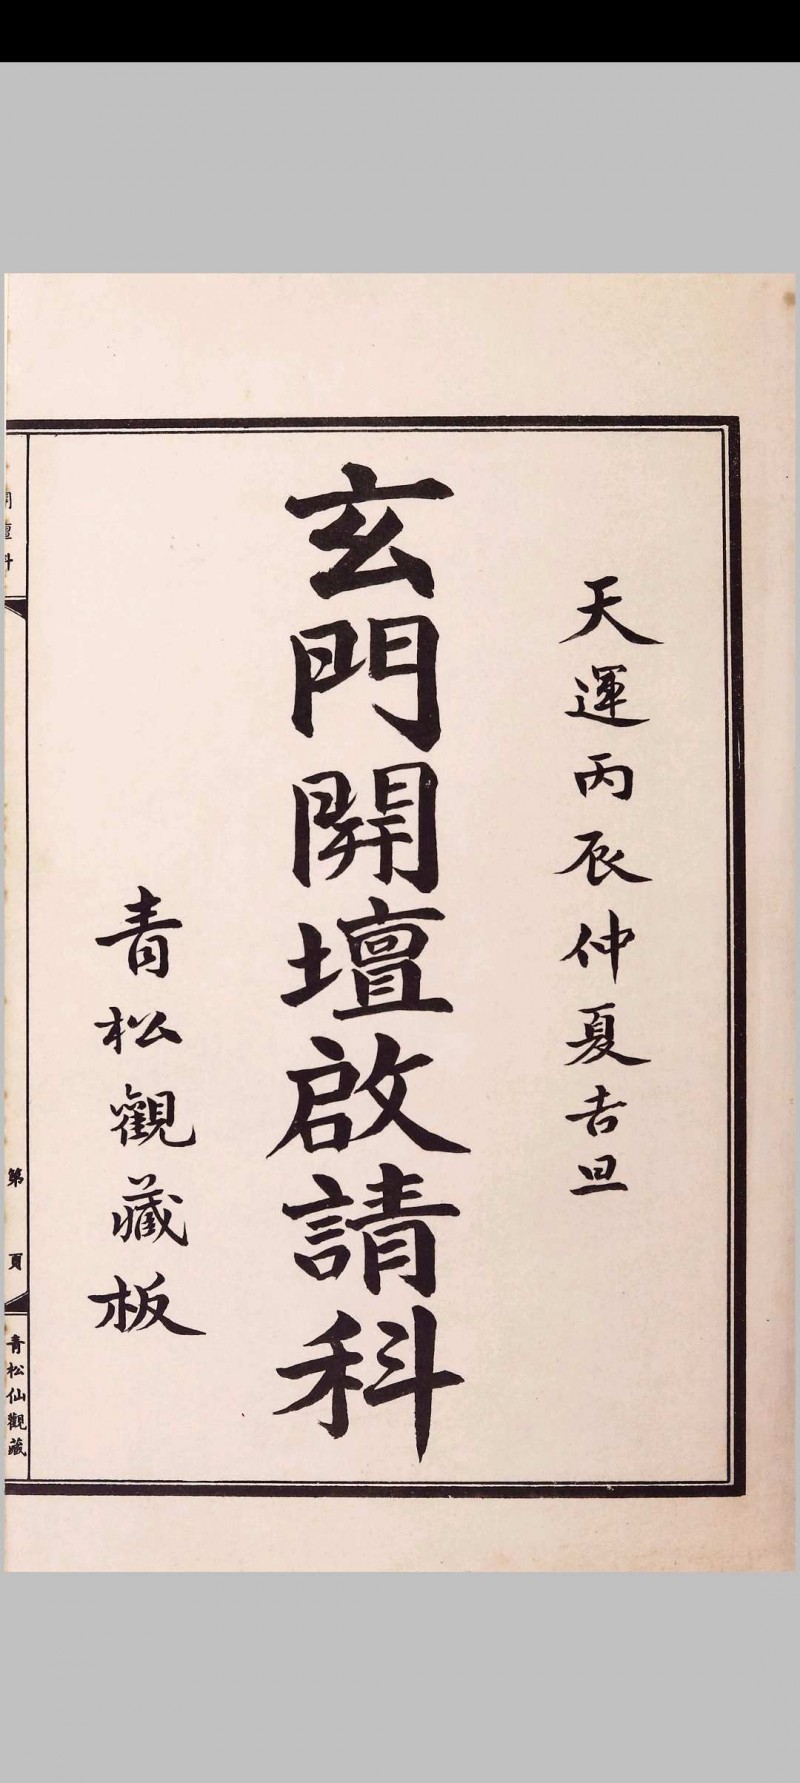 天運丙辰仲夏吉旦
玄門開壇啟請科
青松觀藏板
開壇科
第 頁
青松仙觀藏